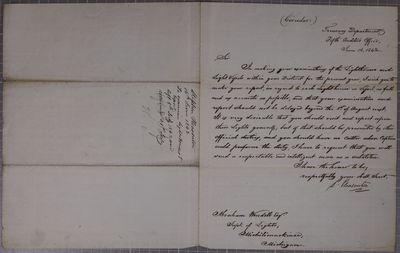 (Circular.)
Treasury Department
Fifth Auditor's Office
June 10, 1842
Sir
In making your examination of the Lighthouses and
Light Vessels within your District for the present year, I wish you to
make your report, in regard to each Lighthouse in detail, as full
and as accurate as possible, and that your examination and
report should not be delayed beyond the 1st of August next.
It is very desirable that you should visit and report upon
these Lights personally, but if that should be prevented by other
official duties, and you should have no Cutter whose Captain
could perform the duty, I have to request that you will
send a respectable and intelligent man as a substitute.
I have the honor to be,
respectfully your obdt. Servt.
S. Pleasonton
Abraham Wendell Esq
Supt. of Lights,
Michilimackinac,
Michigan
Stephen Pleasonton
10 June 1842
Treasury Department